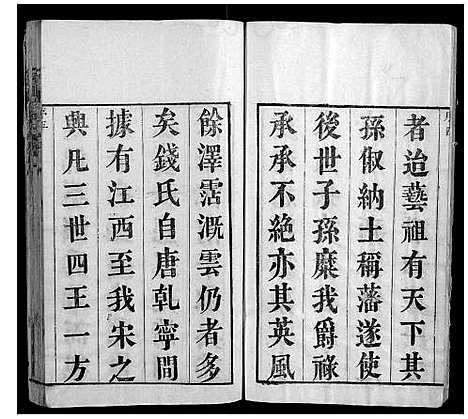 者迨藝祖有天下其
孫俶納土稱藩遂使
後世子孫縻我爵祿
承承不絶亦其英風
餘澤霑溉雲仍者多
矣錢氏自唐乹寧間
據有江西至我宋之
興凡三世四王一方